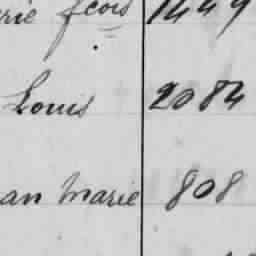 rie fcois 1449
Louis 2084
an Marie 808